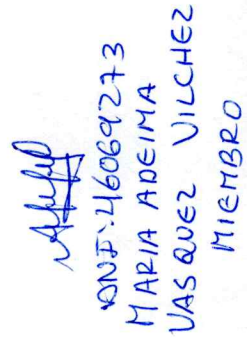 DNI: 46069273
MARIA ADEIMA
VASQUEZ VILCHEZ
MIEMBRO